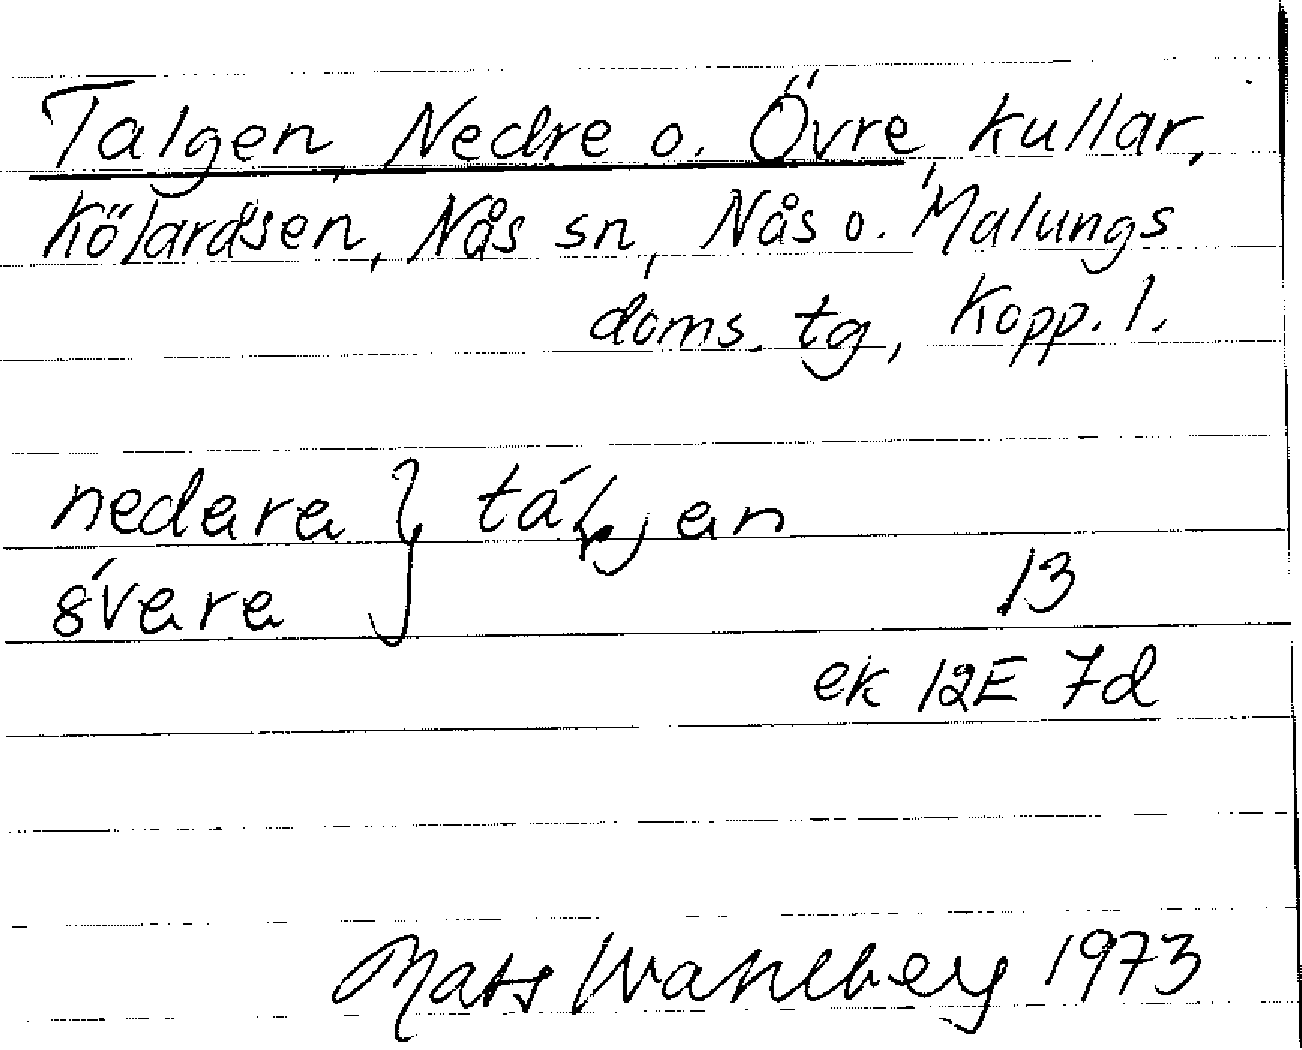 Talgen, Nedre o. Övre, kullar,
Kölaråsen, Nås sn, Nås o. Malungs
doms. tg, Kopp. l.
nedara } táljan
övara
13
ek 12E 7d
Mats Wahlberg 1973